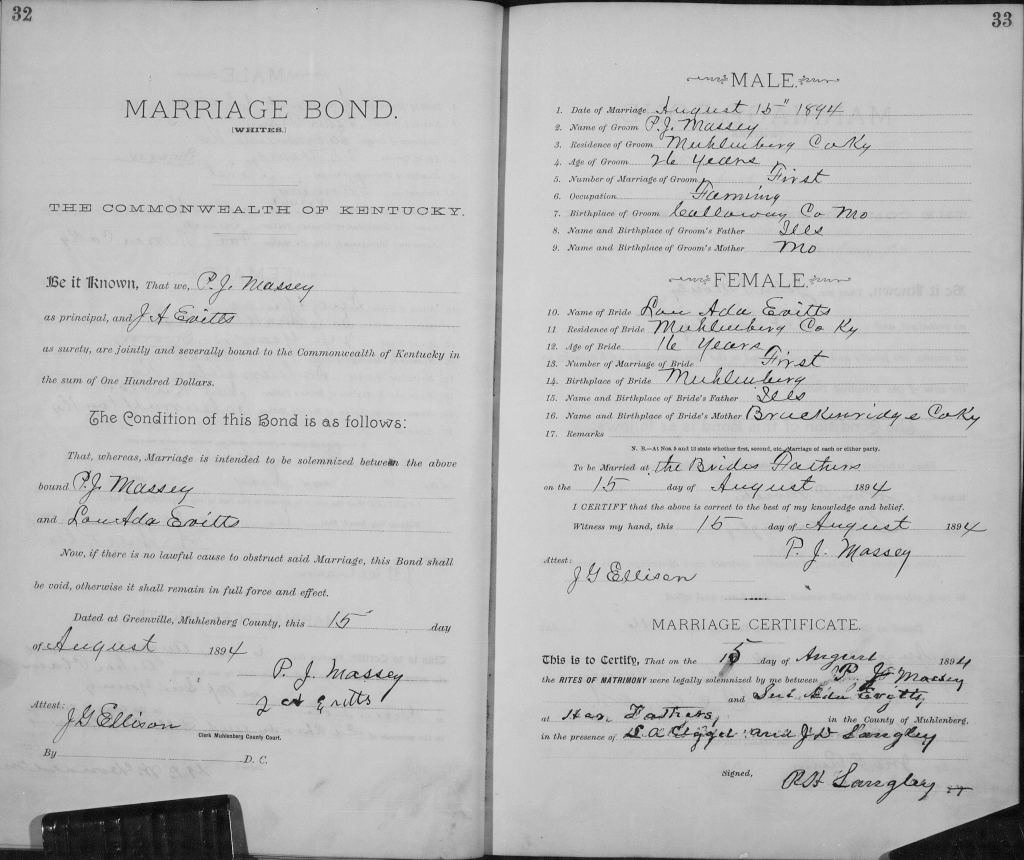 32
MARRIAGE BOND.
[WHITES.]
THE COMMONWEALTH OF KENTUCKY.
Be it Known, That we, P. J. Massey
as principal, and J A Evitts
as surety, are jointly and severally bound to the Commonwealth of Kentucky in
the sum of One Hundred Dollars.
The Condition of this Bond is as follows:
That, whereas, Marriage is intended to be solemnized between the above
bound P. J. Massey
and Lou Ada Evitts
Now, if there is no lawful cause to obstruct said Marriage, this Bond shall
be void, otherwise it shall remain in full force and effect.
Dated at Greenville, Muhlenberg County, this 15 day
of August 1894
P. J. Massey
Evitts
Attest:
J G Ellison
Clerk Muhlenberg County Court.
By D. C.
33
MALE.
1. Date of Marriage August 15" 1894
2. Name of Groom P. J. Massey
3. Residence of Groom Muhlenberg Co Ky
4. Age of Groom 26 Years
5. Number of Marriage of Groom First
6. Occupation Farming
7. Birthplace of Groom Calloway Co Mo
8. Name and Birthplace of Groom's Father Ills
9. Name and Birthplace of Groom's Mother Mo
FEMALE.
10. Name of Bride Lou Ada Evitts
11 Residence of Bride Muhlenberg Co Ky
12. Age of Bride 16 Years
13. Number of Marriage of Bride First
14. Birthplace of Bride Muhlenberg
15. Name and Birthplace of Bride's Father Ills
16. Name and Birthplace of Bride's Mother Breckenridge Co Ky
17. Remarks
N. B.—At Nos 5 and 13 state whether first, second, etc., Marriage of each or either party.
To be Married at the Brides Fathers
on the 15 day of August 1894
I CERTIFY that the above is correct to the best of my knowledge and belief.
Witness my hand, this 15 day of August 1894
P. J. Massey
Attest:
J G Ellison
MARRIAGE CERTIFICATE.
This is to Certify, That on the 15 day of August 1894
the RITES OF MATRIMONY were legally solemnized by me between P. J. Massey
and Evitts,
at Her Fathers, in the County of Muhlenberg,
in the presence of L A and J D Langley
Signed,
R H Langley